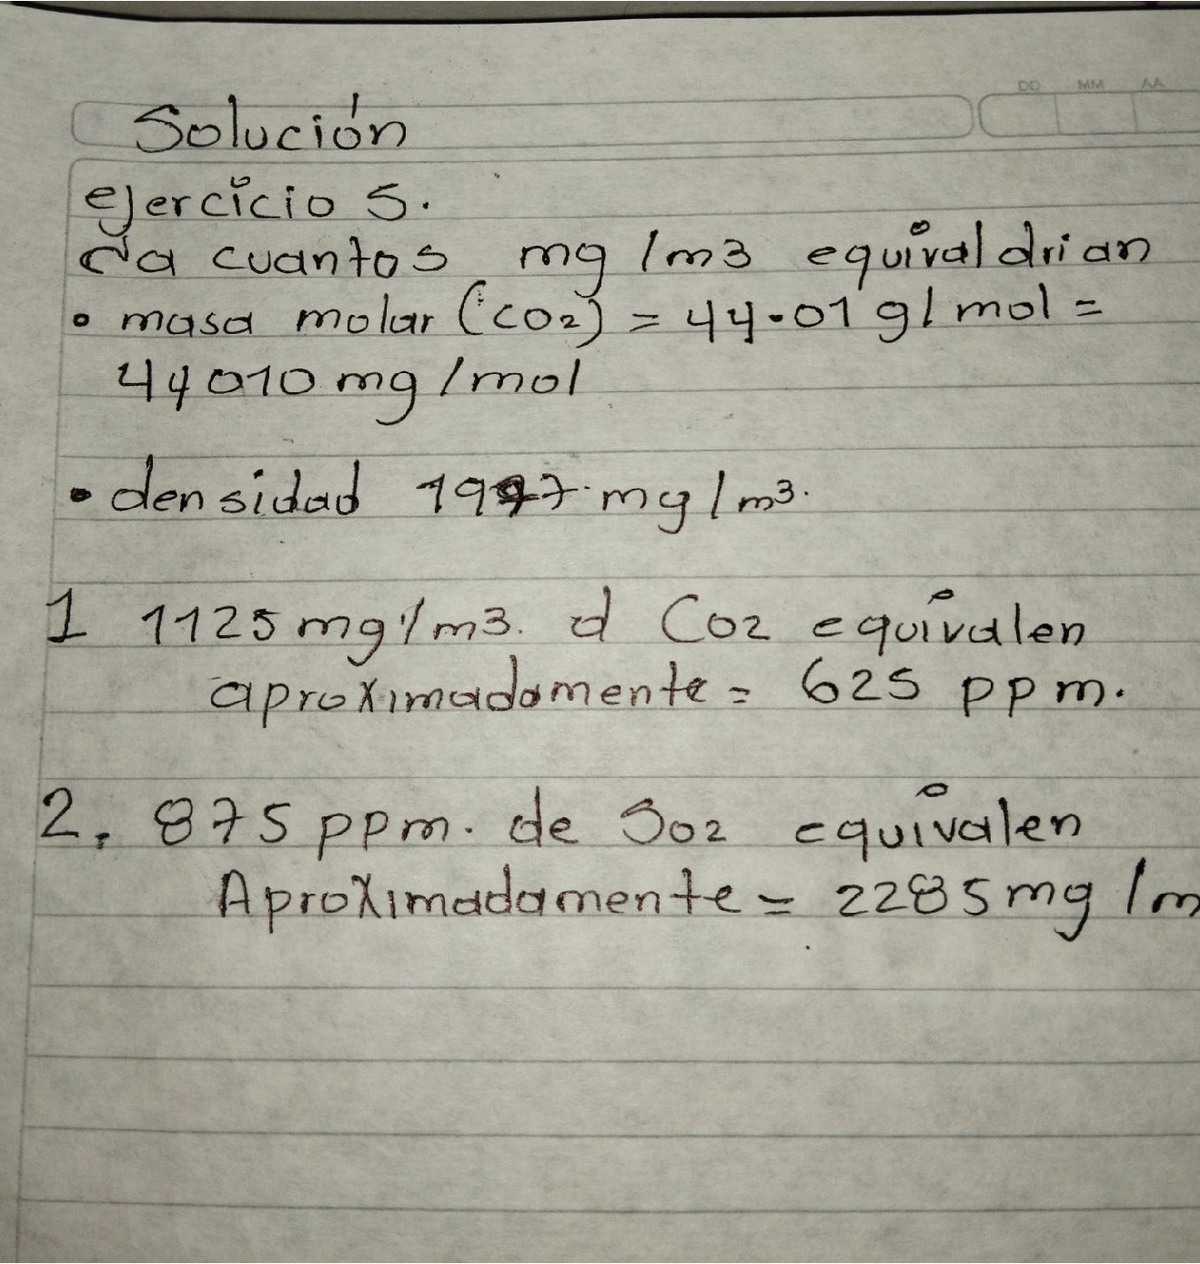 DD MM AA
Solución
ejercicio 5.
a cuantos mg /m3 equivaldrian
• masa molar (CO2) = 44.01 g/mol =
44010 mg/mol
• densidad 1977 mg/m3.
1 1125 mg/m3. d CO2 equivalen
aproximadamente = 625 ppm.
2. 875 ppm. de SO2 equivalen
Aproximadamente = 2285 mg /m